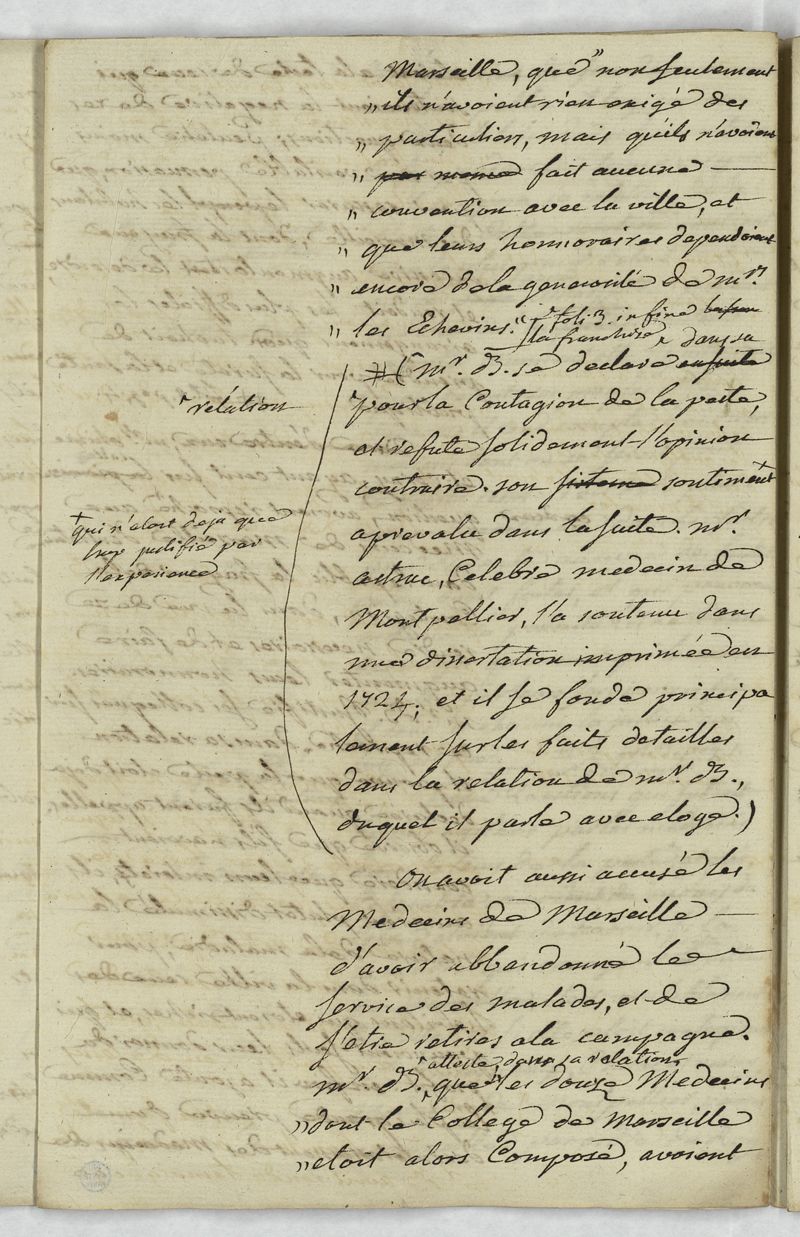 Marseille, que " non seulement
" ils n'avoient rien exigé des
" particuliers, mais qu'ils n'avoient
" pas meme fait aucune —
" convention avec la ville, et
" que leurs honnoraires dependoient
" encore de la generosité de mrs.
" les Echevins." fol. 3. in fine
la franchise, dans sa
# (mr. B. se declare ensuite
relation
pour la Contagion de la peste,
et refute solidement l'opinion
contraire. son sisteme sentiment
+ qui n'etoit deja que
trop justifié par
l'experience
a prevalu dans la suite. mr.
astruc, Celebre medecin de
Montpellier, l'a soutenu dans
une dissertation imprimée en
1724; et il se fonde principa
lement sur les faits detailles
dans la relation de mr. B.,
duquel il parle avec eloge.)
On avoit aussi accusé les
Medecins de Marseille —
d'avoir abbandonné le
service des malades, et de
s'etre retires a la campagne.
atteste, dans sa relation,
mr. B. que " les douze Medecins
" dont le College de Marseille
" etoit alors Composé, avoient